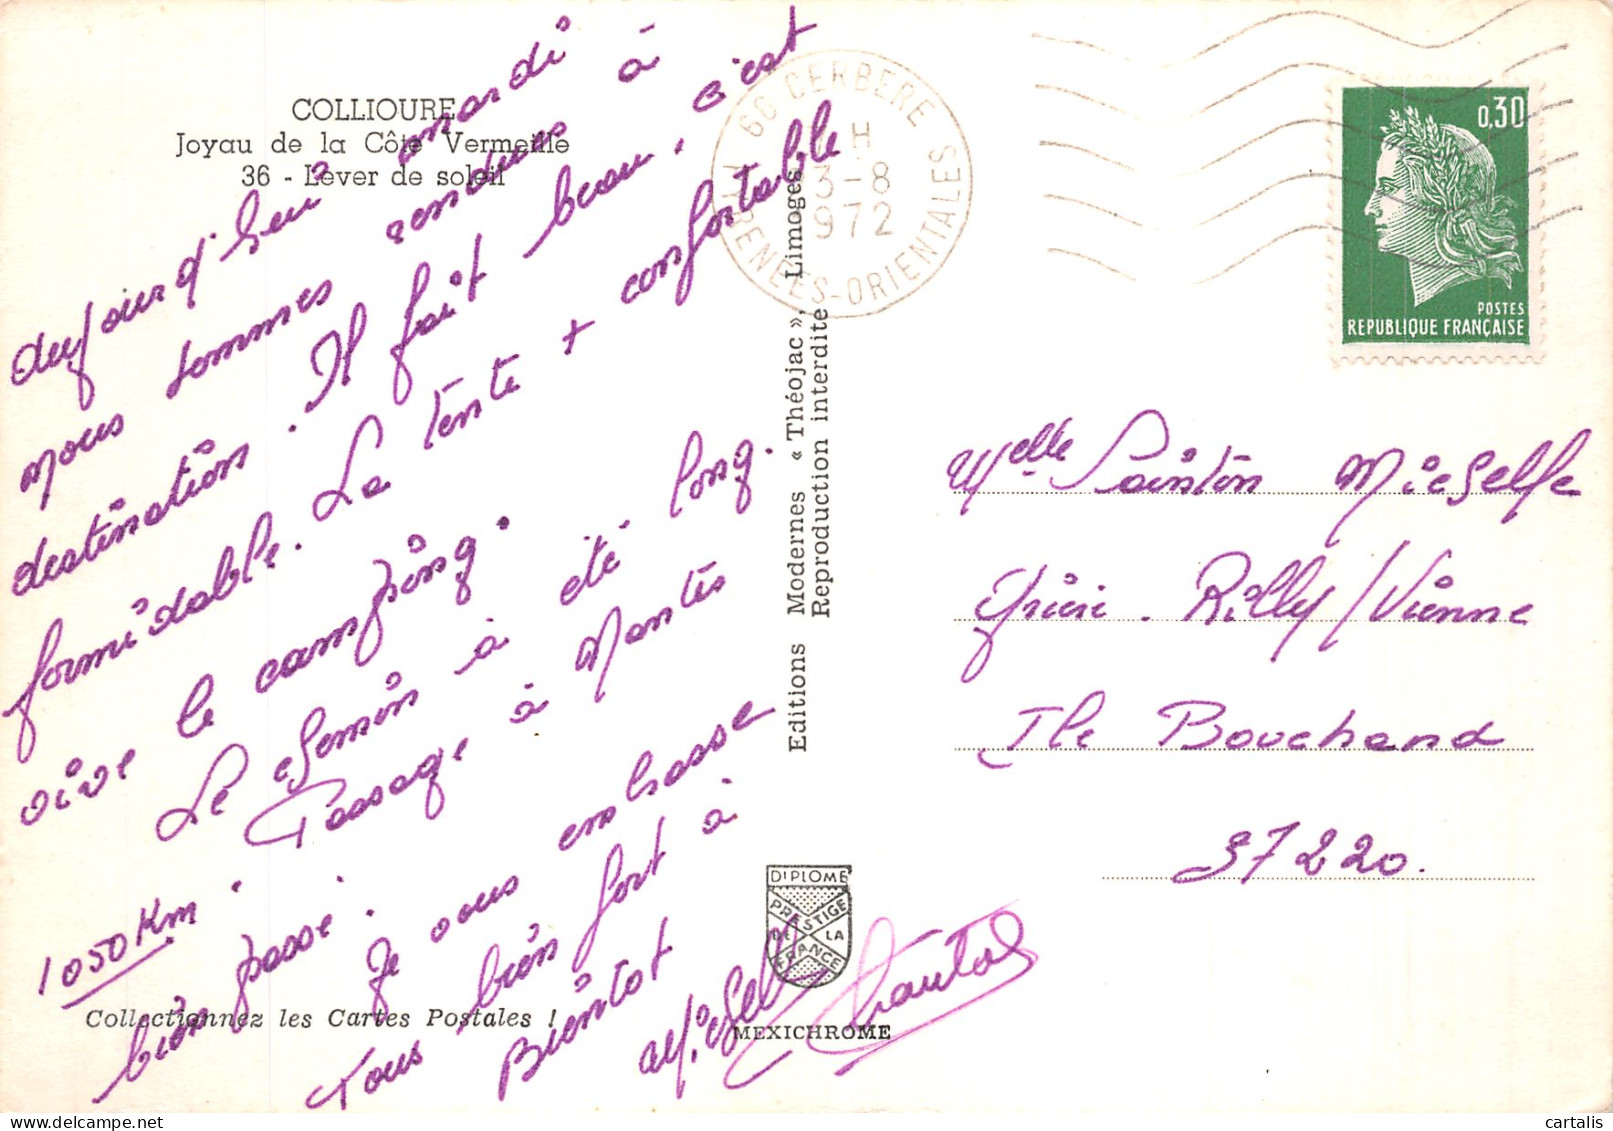 COLLIOURE
Joyau de la Côte Vermeille
36 - Lever de soleil
aujourd'hui mardi
nous sommes rendus à
destination. Il fait beau, c'est
formidable. La tente + confortable
vive le camping.
Le chemin à été long.
1050 Km
Passage à Nantes
bien passé.
Je vous embrasse
Tous bien fort à
Bientot
Michel
Chantal
Collectionnez les Cartes Postales !
Editions Modernes « Théojac », Limoges
Reproduction interdite
DIPLOME
PRESTIGE
DE LA
FRANCE
MEXICHROME
66 CERBERE
H
3-8
1972
PYRENEES-ORIENTALES
0,30
POSTES
REPUBLIQUE FRANÇAISE
Melle Sainton Michelle
Rilly / Vienne
Ile Bouchard
37220.
cartalis